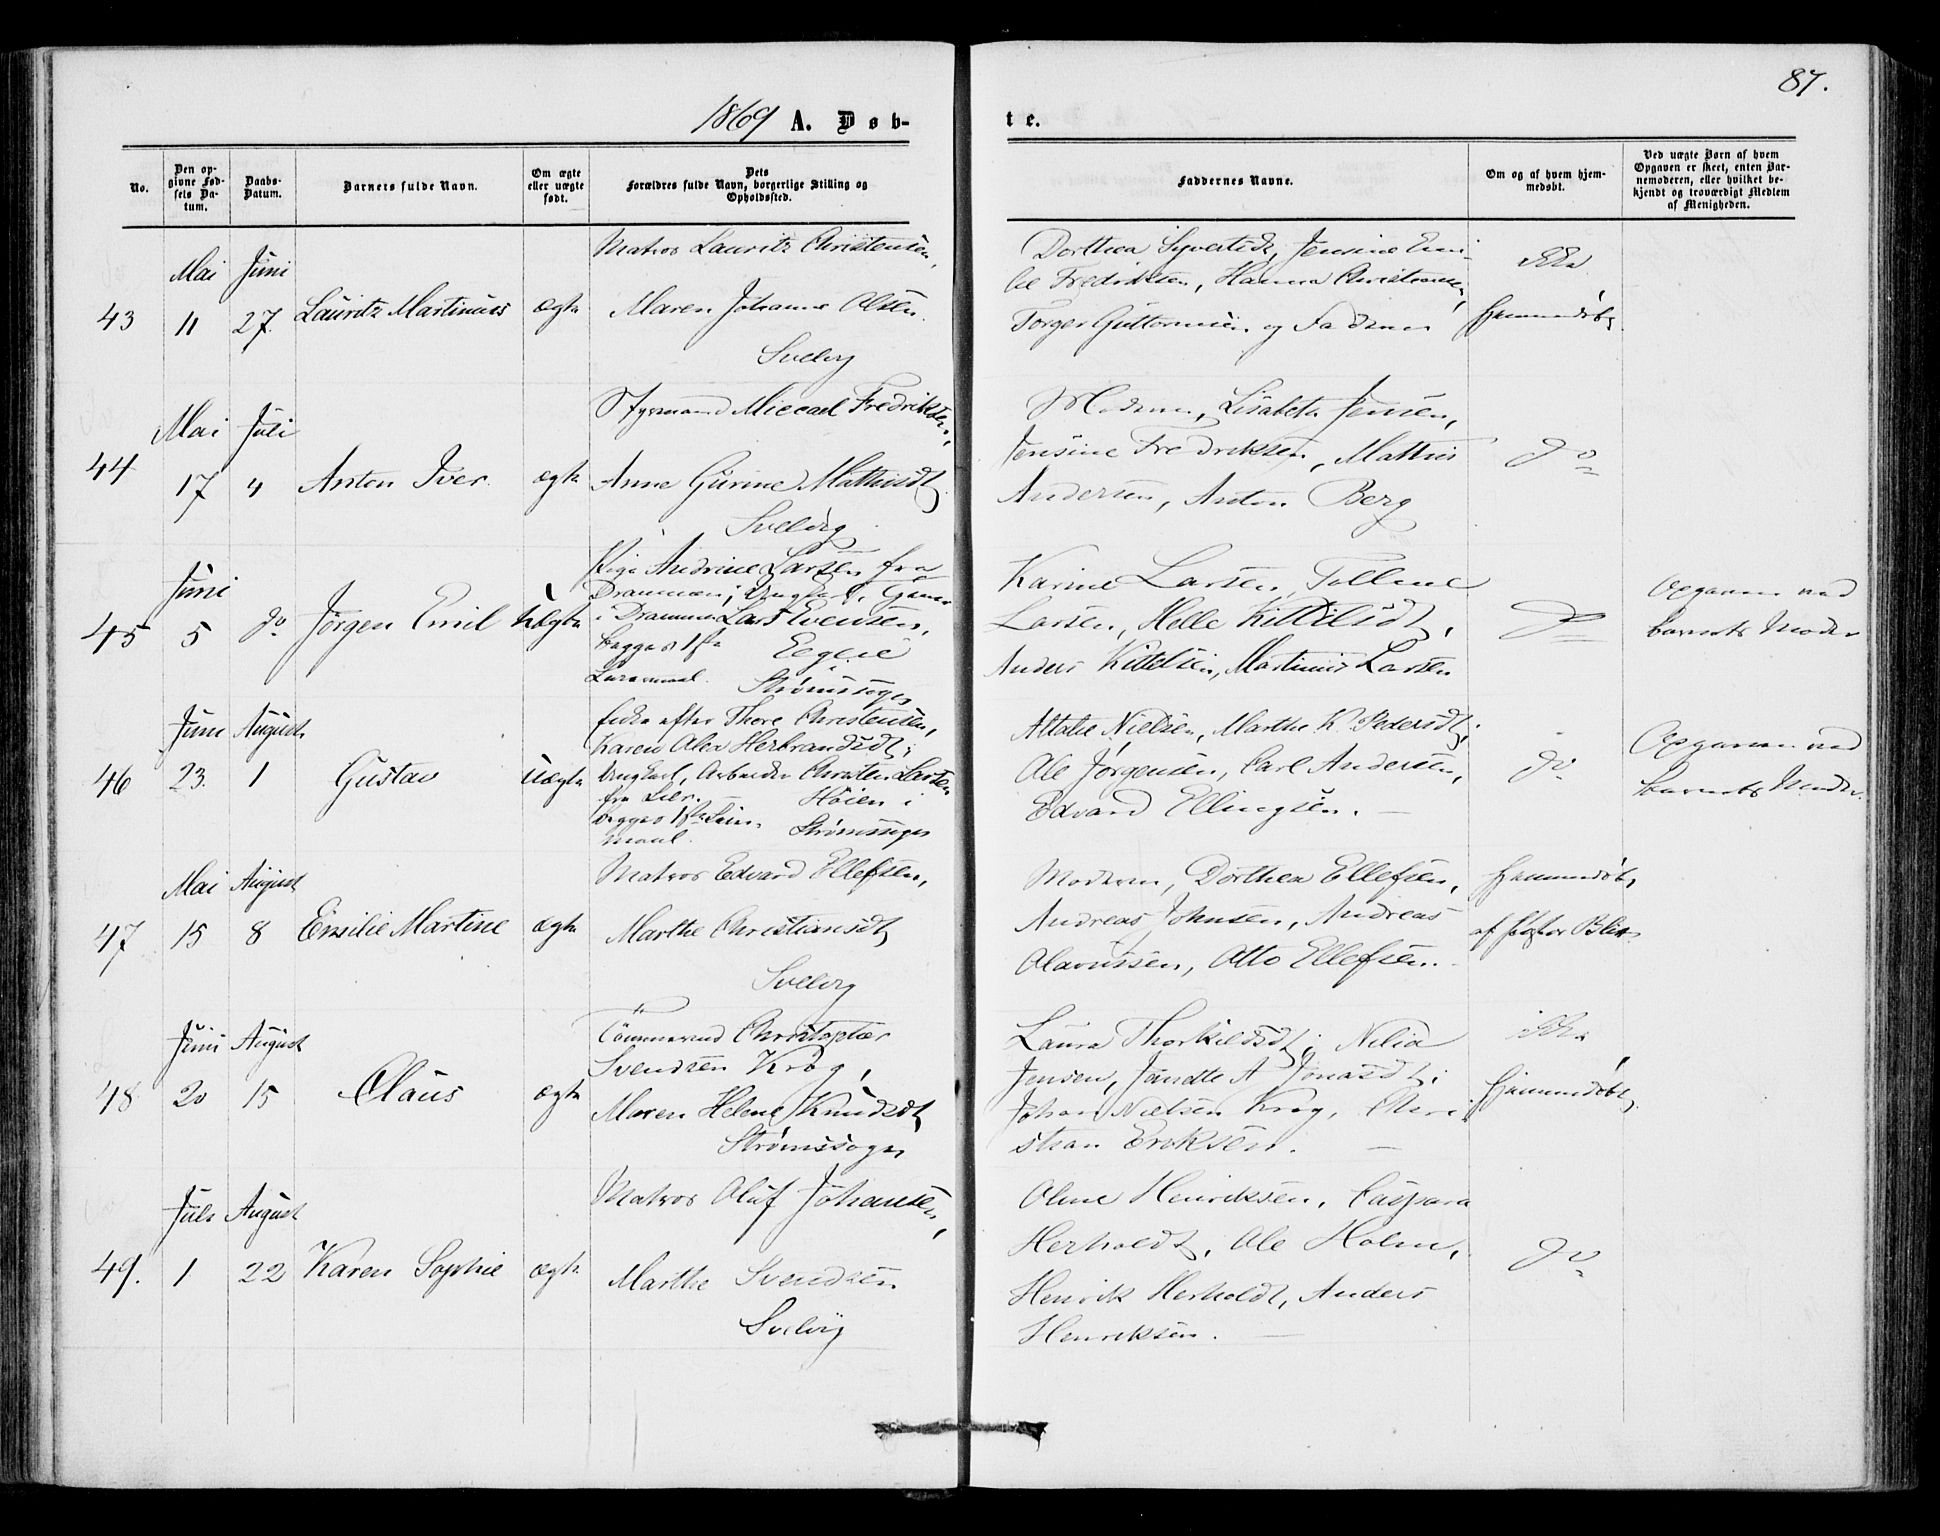 87.
1869 A. Døb-
te.
No.
Den op-
givne Fød-
sels Da-
tum.
Daabs-
Datum.
Barnets fulde Navn.
Om ægte
eller uægte
født.
Dets
Forældres fulde Navn, borgerlige Stilling og
Opholdssted.
Faddernes Navne.
Om og af hvem hjem-
medøbt.
Ved uægte Børn af hvem
Opgaven er skeet, enten Bar-
nemoderen, eller hvilket be-
kjendt og troværdigt Medlem
af Menigheden.
43
Mai
11
Juni
27.
Lauritz Martinus
ægte
Matros Lauritz Christensen,
Maren Johanne Olsen.
Svelvig
Dorthea Syvertsdt, Jensine Emi-
lie Fredriksen, Hanna Christensen,
Torger Guttormsen og Faderen
ikke
hjemmedøbt
44
Mai
17
Juli
4
Anton Iver.
ægte
Styrmand Micael Fredriksen,
Anne Gurine Mathisdt
Svelvig
Moderen, Lisabeth Jensen,
Jensine Fredriksen, Mathis
Andersen, Anton Berg
do
45
Juni
5
do
Jørgen Emil
uægte
Pige Andrine Larsen fra
Drammen; Ungkarl,
i Drammen Lars Evensen,
begges 1ste
Leiermaal.
Eegeie
i
Strømssogn
Karine Larsen, Tolline
Larsen, Helle Kittilsdt,
Anders Kittelsen, Martinus Larsen
do
Opgaven ved
barnets Moder
46
Juni
23.
August
1
Gustav
uægte
Enke efter Thore Christensen,
Karen Olea Herbrandsdt;
Ungkarl, Arbeider Christen Larsen
fra Lier.
Høien i
begges 1ste Leier-
maal.
Strømssogn
Attalie Nielsen, Marthe K. Pedersdt;
Ole Jørgensen, Carl Andersen,
Edvard Ellingsen. —
do
Opgaven ved
barnets Moder.
47
Mai
15
August
8
Emilie Martine
ægte
Matros Edvard Ellefsen,
Marthe Christiansdt
Svelvig
Moderen, Dorthea Ellefsen,
Andreas Johnsen, Andreas
Olavussen, Otto Ellefsen.
hjemmedøbt
af Blix
48
Juni
20
August
15
Claus
ægte
Tømmermand Christopher
Svendsen Krog,
Maren Helene Knudsdt
Strømssogn
Laura Thorkildsdt; Nilia
Jensen, Janette A Jonasdt;
Johan Nielsen Krog, Chri-
stian Eriksen. —
ikke
hjemmedøbt
49.
Juli
1
August
22
Karen Sophie
ægte
Matros Oluf Johansen,
Marthe Svendsen
Svelvig
Oline Henriksen, Caspara
Herholdt, Ole Holm,
Henrik Herholdt, Anders
Henriksen. —
do